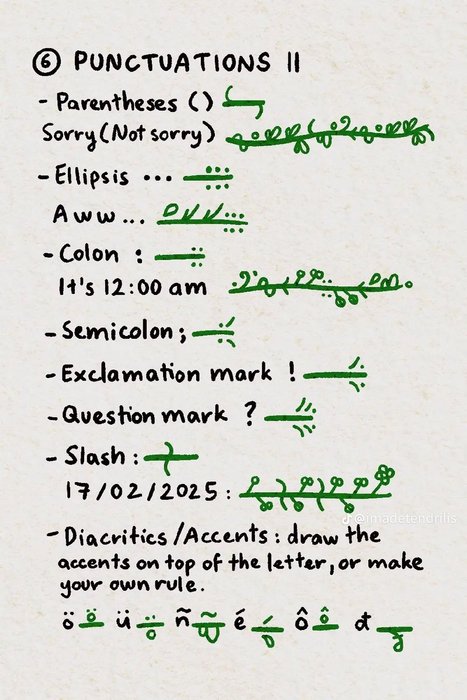 ⑥ PUNCTUATIONS II
- Parentheses ( )
Sorry (Not sorry)
- Ellipsis ...
Aww...
- Colon :
It's 12:00 am
- Semicolon ;
- Exclamation mark !
- Question mark ?
- Slash :
17/02/2025 :
@imadetendrilis
- Diacritics / Accents : draw the
accents on top of the letter, or make
your own rule.
ö ü ñ é ô đ